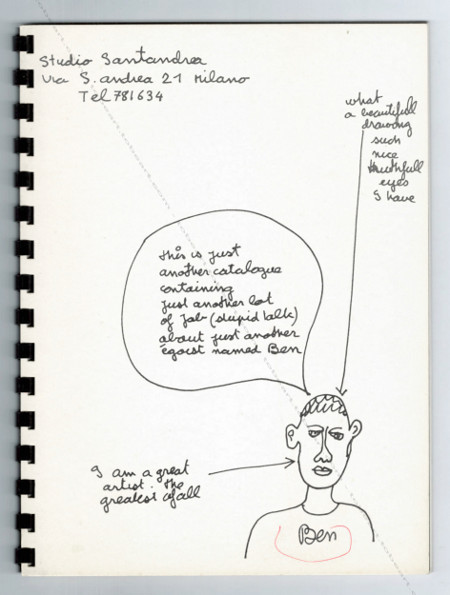 Studio Santandrea
Via S. andrea 21 Milano
Tel 781634
what
a beautifull
drawing
such
nice
thruthfull
eyes
I have
this is just
another catalogue
containing
just another lot
of jab (stupid talk)
about just another
égoist named Ben
I am a great
artist. the
greatest of all
Ben